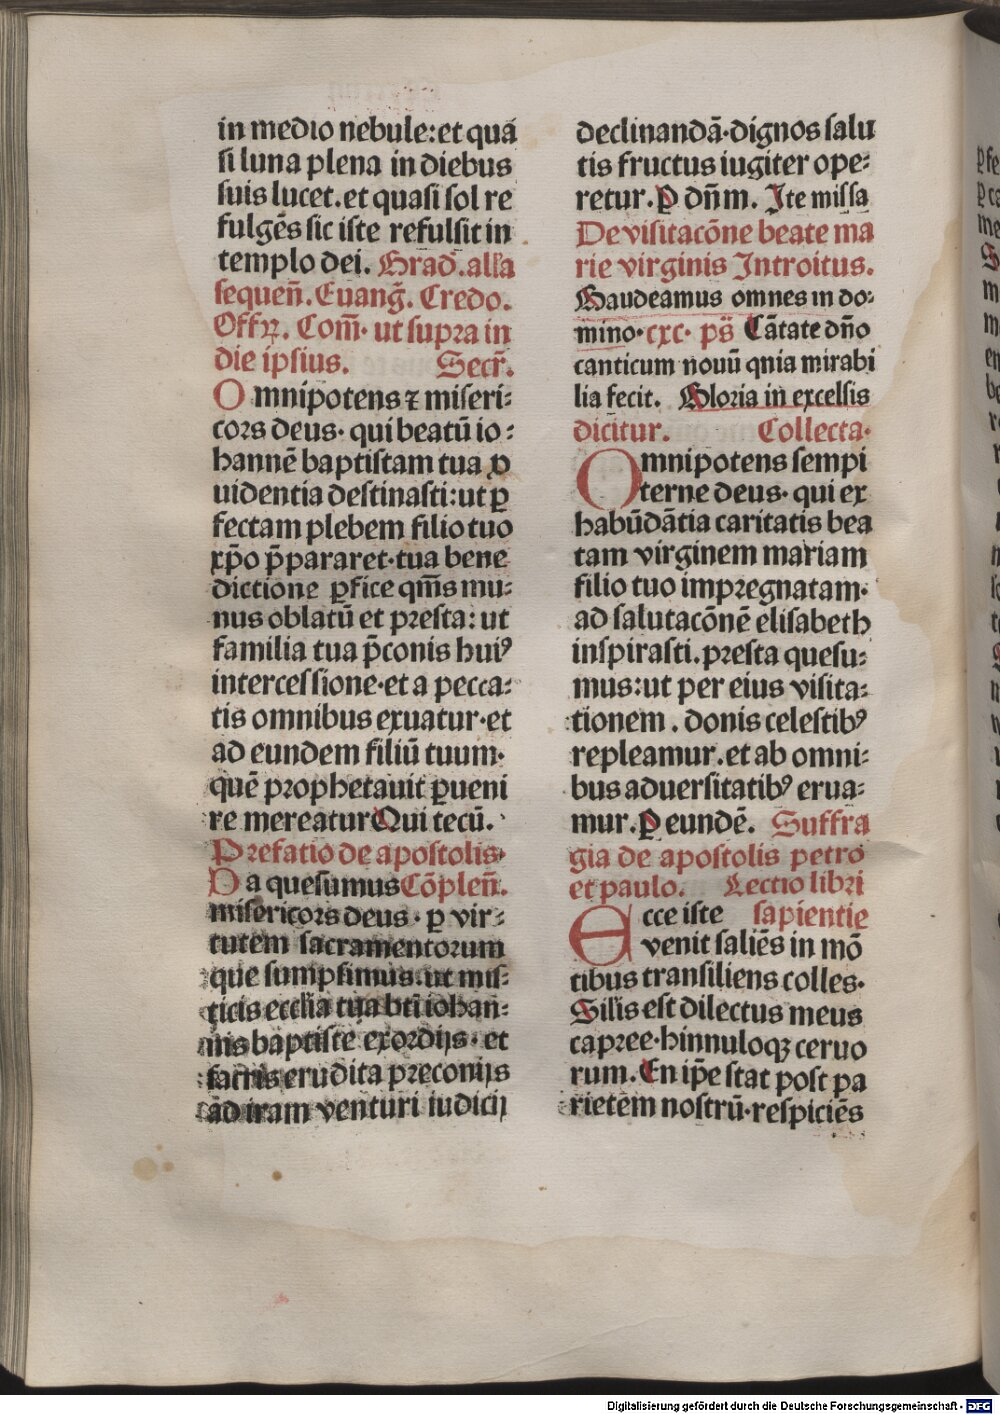 in medio nebule: et qua
si luna plena in diebus
suis lucet. et quasi sol re
fulgēs sic iste refulsit in
templo dei. Grad̄. alľa
sequen̄. Euanḡ. Credo.
Offꝝ. Com̄· ut supra in
die ipsius. Secr̄.
Omnipotens ⁊ miseri⸗
cors deus· qui beatū io⸗
hannē baptistam tua ꝓ
uidentia destinasti: ut ꝑ
fectam plebem filio tuo
xp̄o p̄pararet· tua bene
dictione ꝑfice qm̄s mu⸗
nus oblatū et presta: ut
familia tua p̄conis huiꝰ
intercessione· et a pecca⸗
tis omnibus exuatur· et
ad eundem filiū tuum·
quē prophetauit ꝑueni
re mereatur Qui tecū.
Prefatio de apostolis·
Da quesumus Cōplen̄.
misericors deus· ꝑ vir⸗
tutem sacramentorum
que sumpsimus. ut mis⸗
ticis ecclīa tua btī iohan⸗
nis baptiste exordijs· et
sacris erudita preconijs
ad iram venturi iudicij
declinandā· dignos salu
tis fructus iugiter ope⸗
retur. ꝑ dn̄m. Ite missa
De visitacōne beate ma
rie virginis Introitus.
Gaudeamus omnes in do⸗
mino· cxc· ps̄ Cātate dn̄o
canticum nouū qnia mirabi
lia fecit. Gloria in excelsis
dicitur. Collecta·
Omnipotens sempi
terne deus· qui ex
habūdātia caritatis bea
tam virginem mariam
filio tuo impregnatam·
ad salutacōnē elisabeth
inspirasti. presta quesu⸗
mus: ut per eius visita⸗
tionem. donis celestibꝰ
repleamur. et ab omni⸗
bus aduersitatibꝰ erua⸗
mur. ꝑ eundē. Suffra
gia de apostolis petro
et paulo. Lectio libri
Ecce iste sapientie
venit saliēs in mō
tibus transiliens colles·
Silis est dilectus meus
capree· hinnuloqꝫ ceruo
rum. En ip̄e stat post pa
rietem nostrū· respiciēs
Digitalisierung gefördert durch die Deutsche Forschungsgemeinschaft - DFG